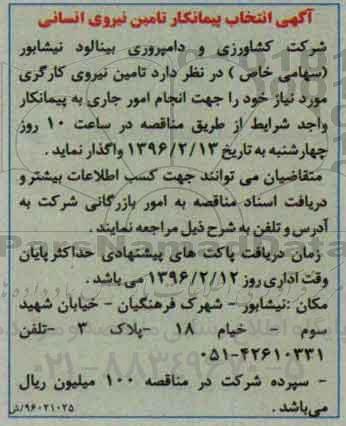 آگهی انتخاب پیمانکار تامین نیروی انسانی
شرکت کشاورزی و دامپروری بینالود نیشابور
(سهامی خاص ) در نظر دارد تامین نیروی کارگری
مورد نیاز خود را جهت انجام امور جاری به پیمانکار
واجد شرایط از طریق مناقصه در ساعت ۱۰ روز
چهارشنبه به تاریخ ۱۳۹۶/۲/۱۳ واگذار نماید .
متقاضیان می توانند جهت کسب اطلاعات بیشتر و
دریافت اسناد مناقصه به امور بازرگانی شرکت به
آدرس و تلفن به شرح ذیل مراجعه نمایند .
زمان دریافت پاکت های پیشنهادی حداکثر پایان
وقت اداری روز ۱۳۹۶/۲/۱۲ می باشد .
مکان :نیشابور - شهرک فرهنگیان - خیابان شهید
سوم - خیام ۱۸ -پلاک ۳ -تلفن
۰۵۱-۴۲۶۱۰۳۳۱
- سپرده شرکت در مناقصه ۱۰۰ میلیون ریال
می‌باشد .
۹۶۰۲۱۰۲۵/ش
ParsNamadData
۰۲۱-۸۸۳۴۹۶۷۰-۵